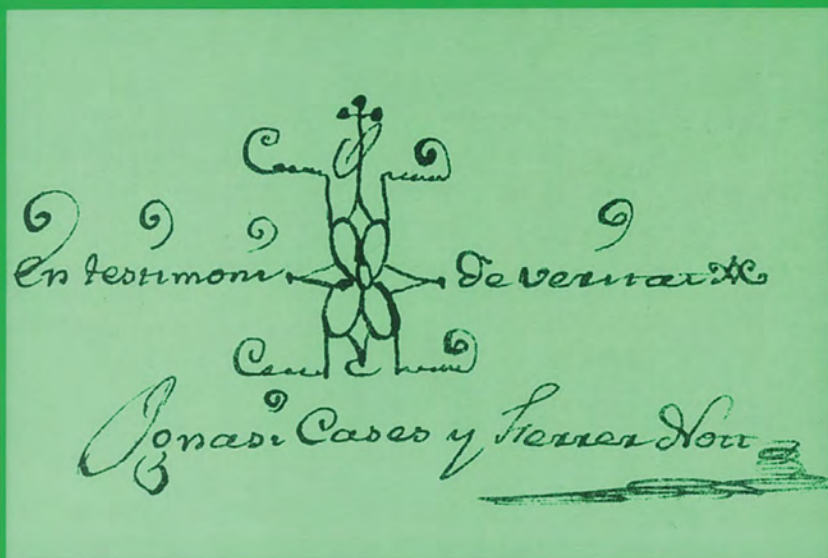 En testimoni de veritat
Ignasi Cases y Ferrer Nott